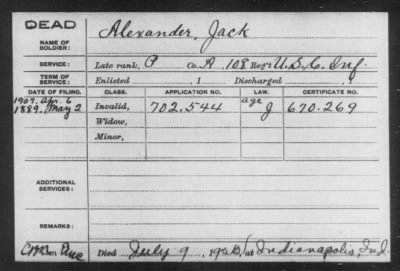 DEAD
NAME OF SOLDIER: Alexander, Jack
SERVICE: Late rank, P Co. A, 108 Reg't U.S.C. Inf.
TERM OF SERVICE: Enlisted , 1 Discharged , 1
DATE OF FILING. CLASS. APPLICATION NO. LAW. CERTIFICATE NO.
1907. Apr. 6 age
1889. May 2 Invalid, 702.544 J 670.269
Widow,
Minor,
ADDITIONAL SERVICES:
REMARKS:
Died July 9, at Indianapolis, Ind